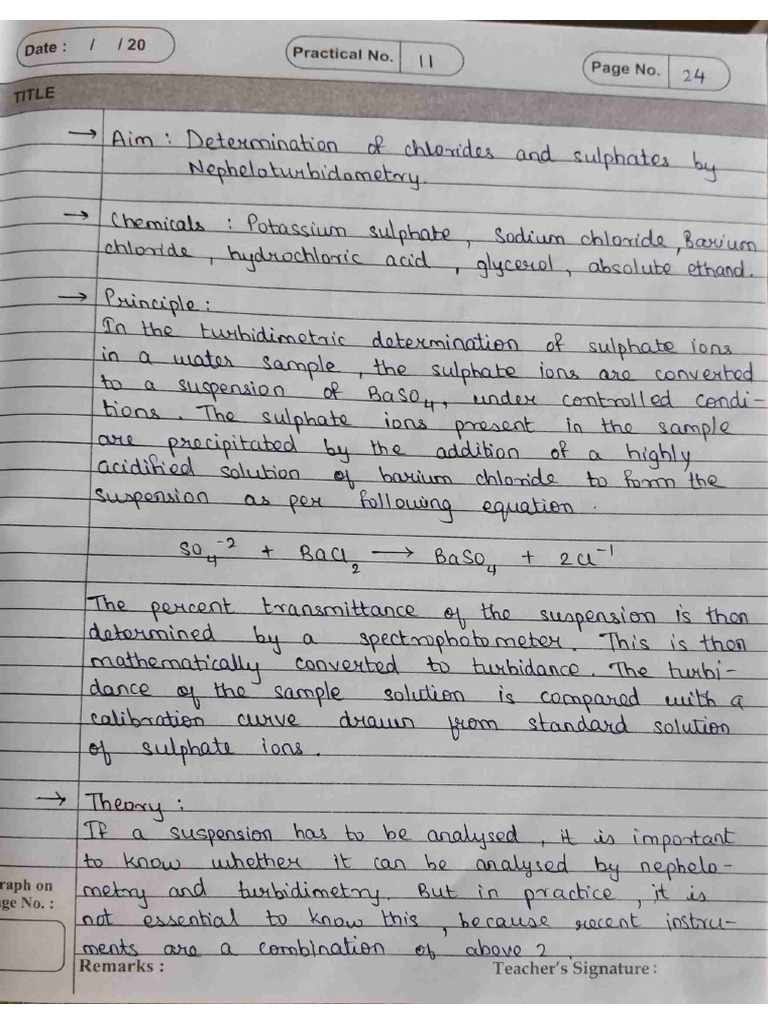 Date : / / 20
Practical No. 11
Page No. 24
TITLE
→ Aim : Determination of chlorides and sulphates by
Nepheloturbidometry.
→ Chemicals : Potassium sulphate, Sodium chloride, Barium
chloride, hydrochloric acid, glycerol, absolute ethanol.
→ Principle :
In the turbidimetric determination of sulphate ions
in a water sample, the sulphate ions are converted
to a suspension of BaSO₄, under controlled condi-
tions. The sulphate ions present in the sample
are precipitated by the addition of a highly
acidified solution of barium chloride to form the
suspension as per following equation.
SO₄⁻² + BaCl₂ → BaSO₄ + 2Cl⁻¹
The percent transmittance of the suspension is then
determined by a spectrophotometer. This is then
mathematically converted to turbidance. The turbi-
dance of the sample solution is compared with a
calibration curve drawn from standard solution
of sulphate ions.
→ Theory :
If a suspension has to be analysed, it is important
to know whether it can be analysed by nephelo-
metry and turbidimetry. But in practice, it is
not essential to know this, because recent instru-
ments are a combination of above 2.
raph on
ge No. :
Remarks :
Teacher's Signature :